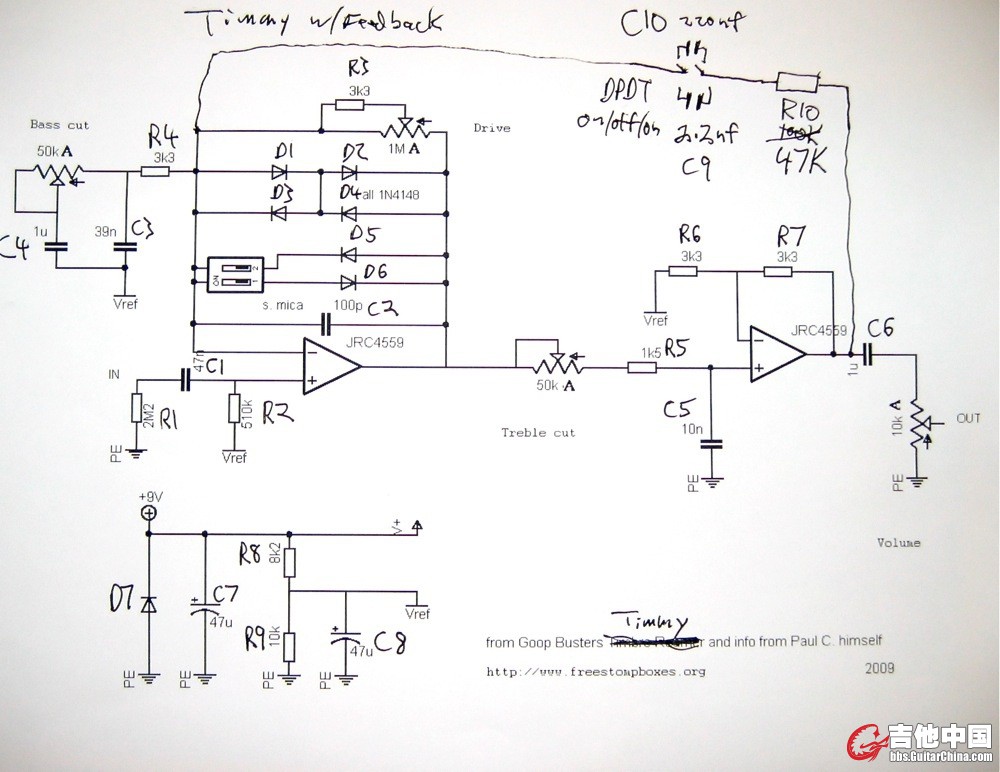 Timmy w/Feedback
C10 220nf
R3
3k3
DPDT
on/off/on
2.2nf
C9
R10
100k
47K
Bass cut
50k A
R4
3k3
Drive
1M A
D1
D2
D3
D4 all 1N4148
D5
D6
1u
C4
39n
C3
Vref
ON
1
2
s. mica
100p
C2
R6
3k3
R7
3k3
Vref
JRC4559
JRC4559
C6
1u
IN
47n
C1
2M2
R1
510k
R2
PE
Vref
50k A
1k5
R5
Treble cut
C5
10n
PE
10k A
OUT
PE
Volume
+9V
V+
D7
C7
47u
R8
8k2
Vref
R9
10k
47u
C8
PE
PE
PE
PE
Timmy
from Goop Busters and info from Paul C. himself
http://www.freestompboxes.org
2009
吉他中国
bbs.GuitarChina.com